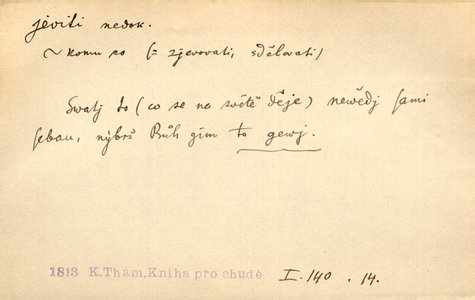 jeviti nedok.
~ komu co (= zjevovati, sdělovati)
Swatj to (co se na světě děje) newědj sami
sebau, nýbrž Bůh gim to gewj.
1813 K.Tham, Kniha pro chudé I. 140 . 14.